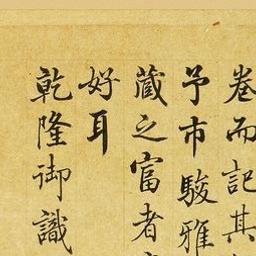 卷而記其
予市駿雅
藏之富者
好耳
乾隆御識